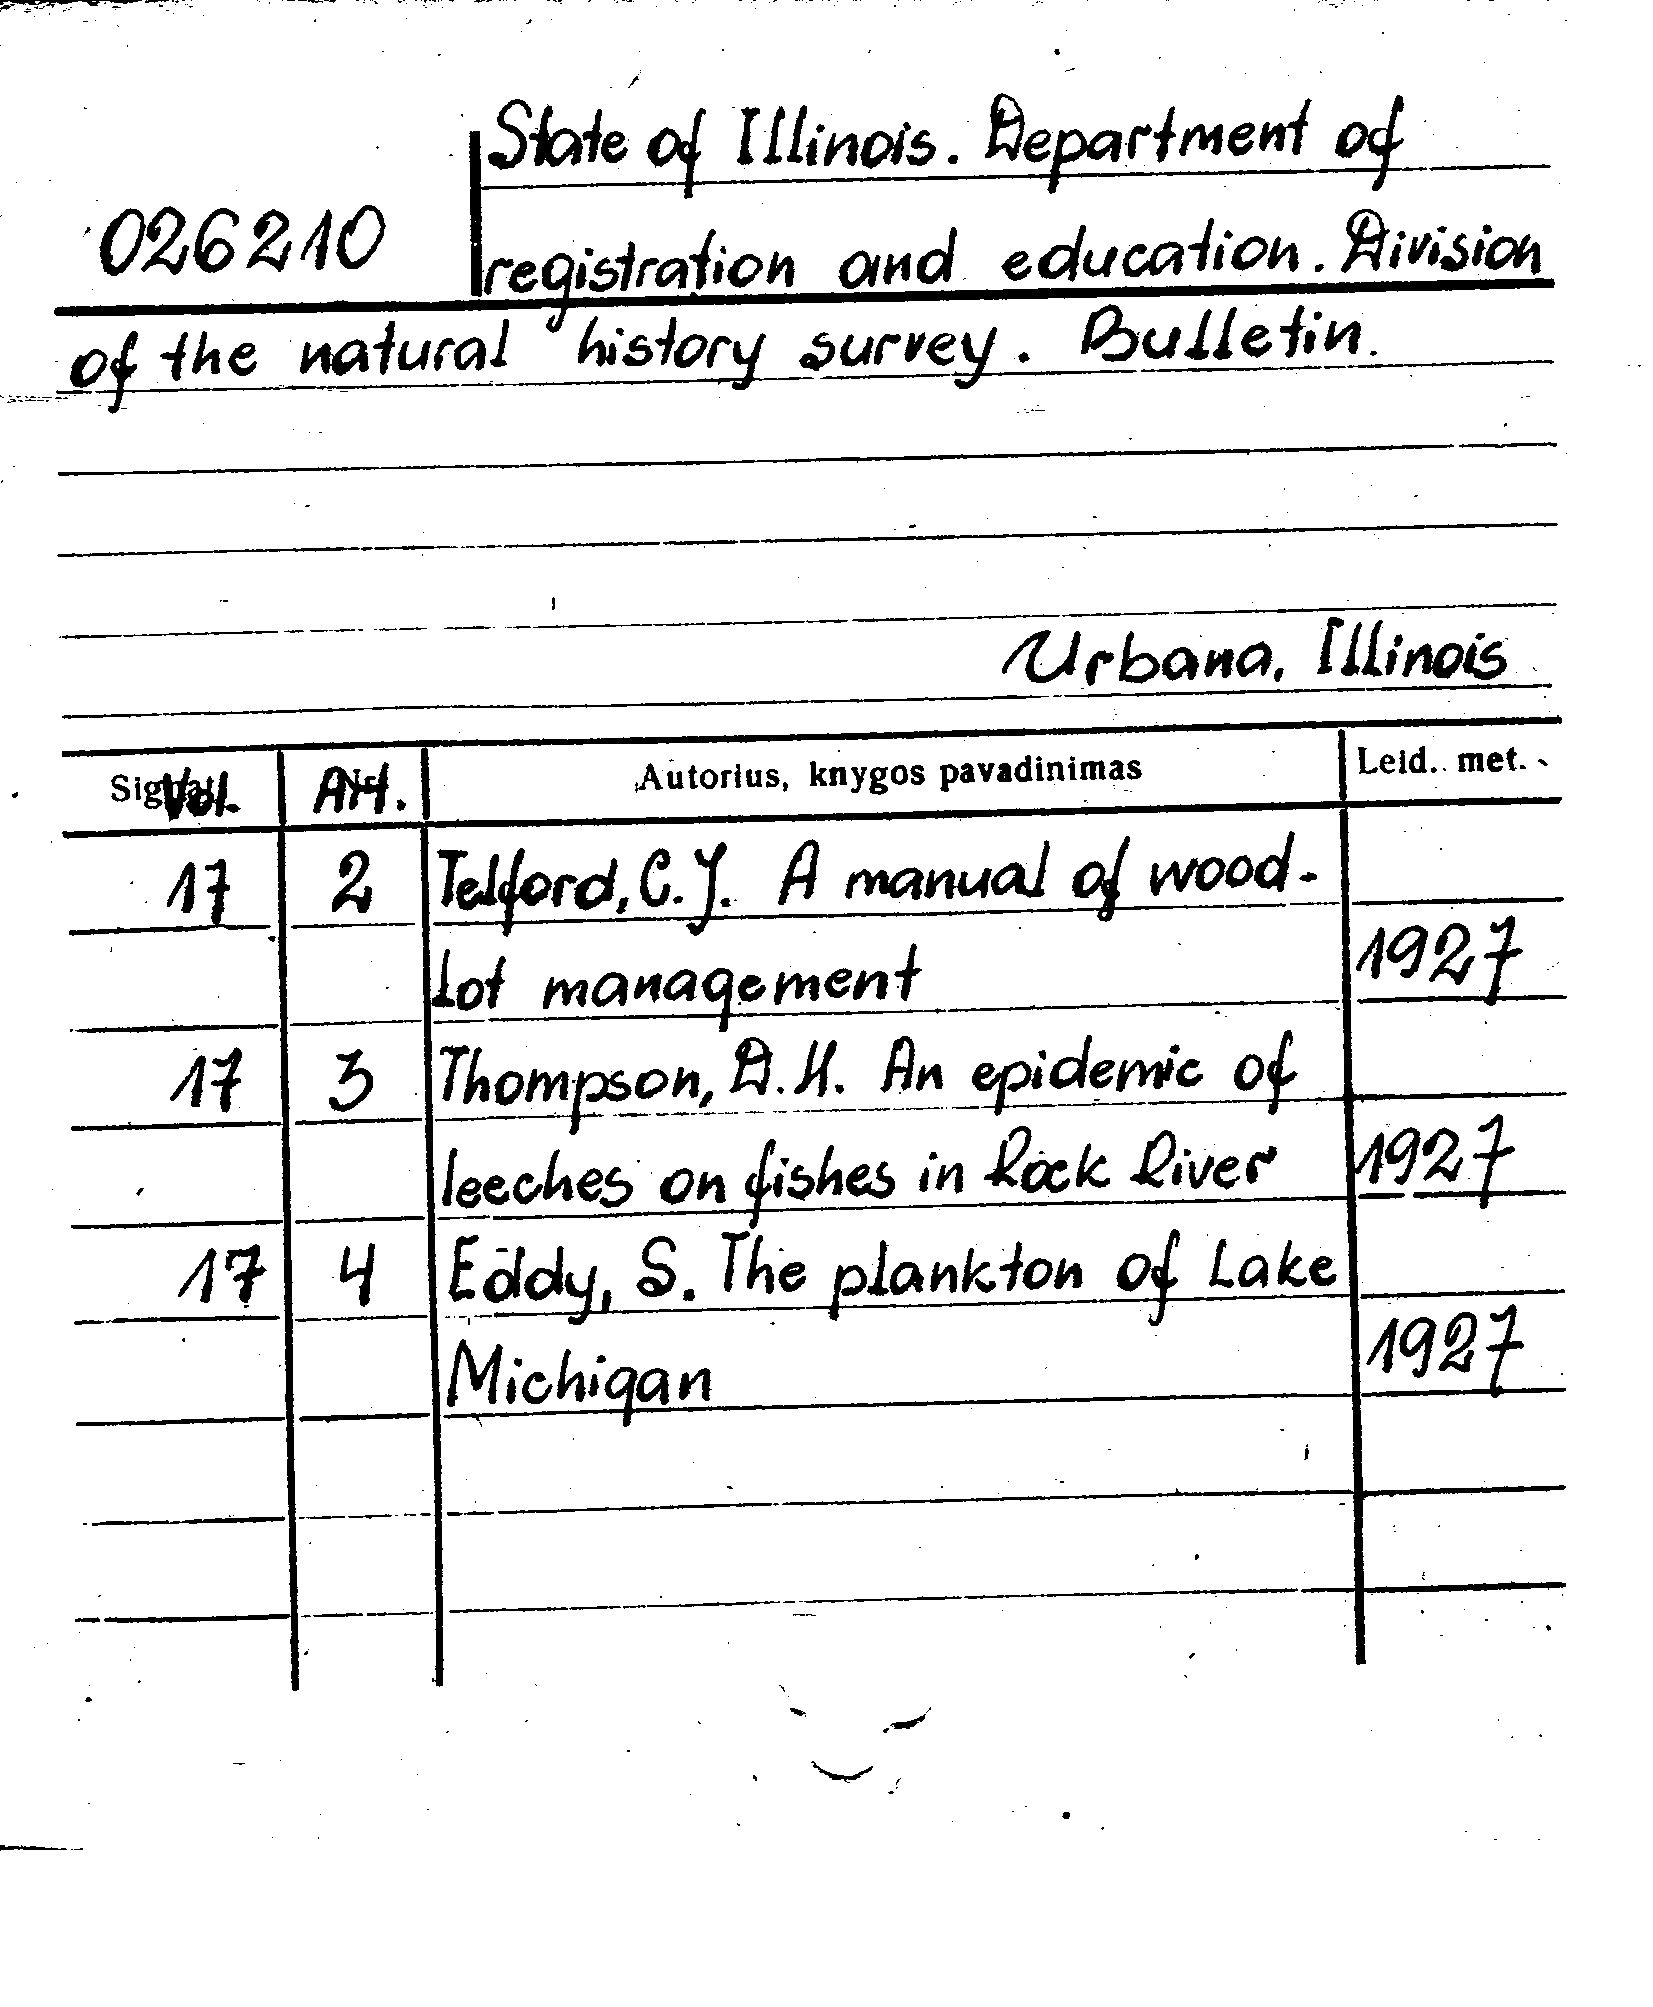 State of Illinois. Department of
026210
registration and education. Division
of the natural history survey. Bulletin.
Urbana, Illinois
Vol. Art. Autorius, knygos pavadinimas Leid. met.
17 2 Telford, C. J. A manual of wood-
lot management 1927
17 3 Thompson, D. H. An epidemic of
leeches on fishes in Rock River 1927
17 4 Eddy, S. The plankton of Lake
Michigan 1927